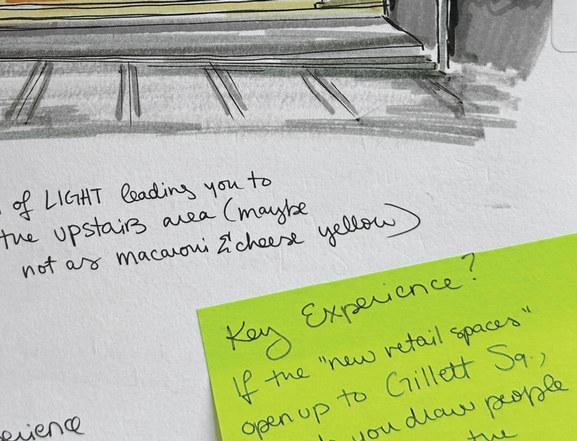 of LIGHT leading you to
the upstairs area (maybe
not as macaroni & cheese yellow)
Key Experience?
If the "new retail spaces"
open up to Gillett Sq.,
you draw people
the
erience